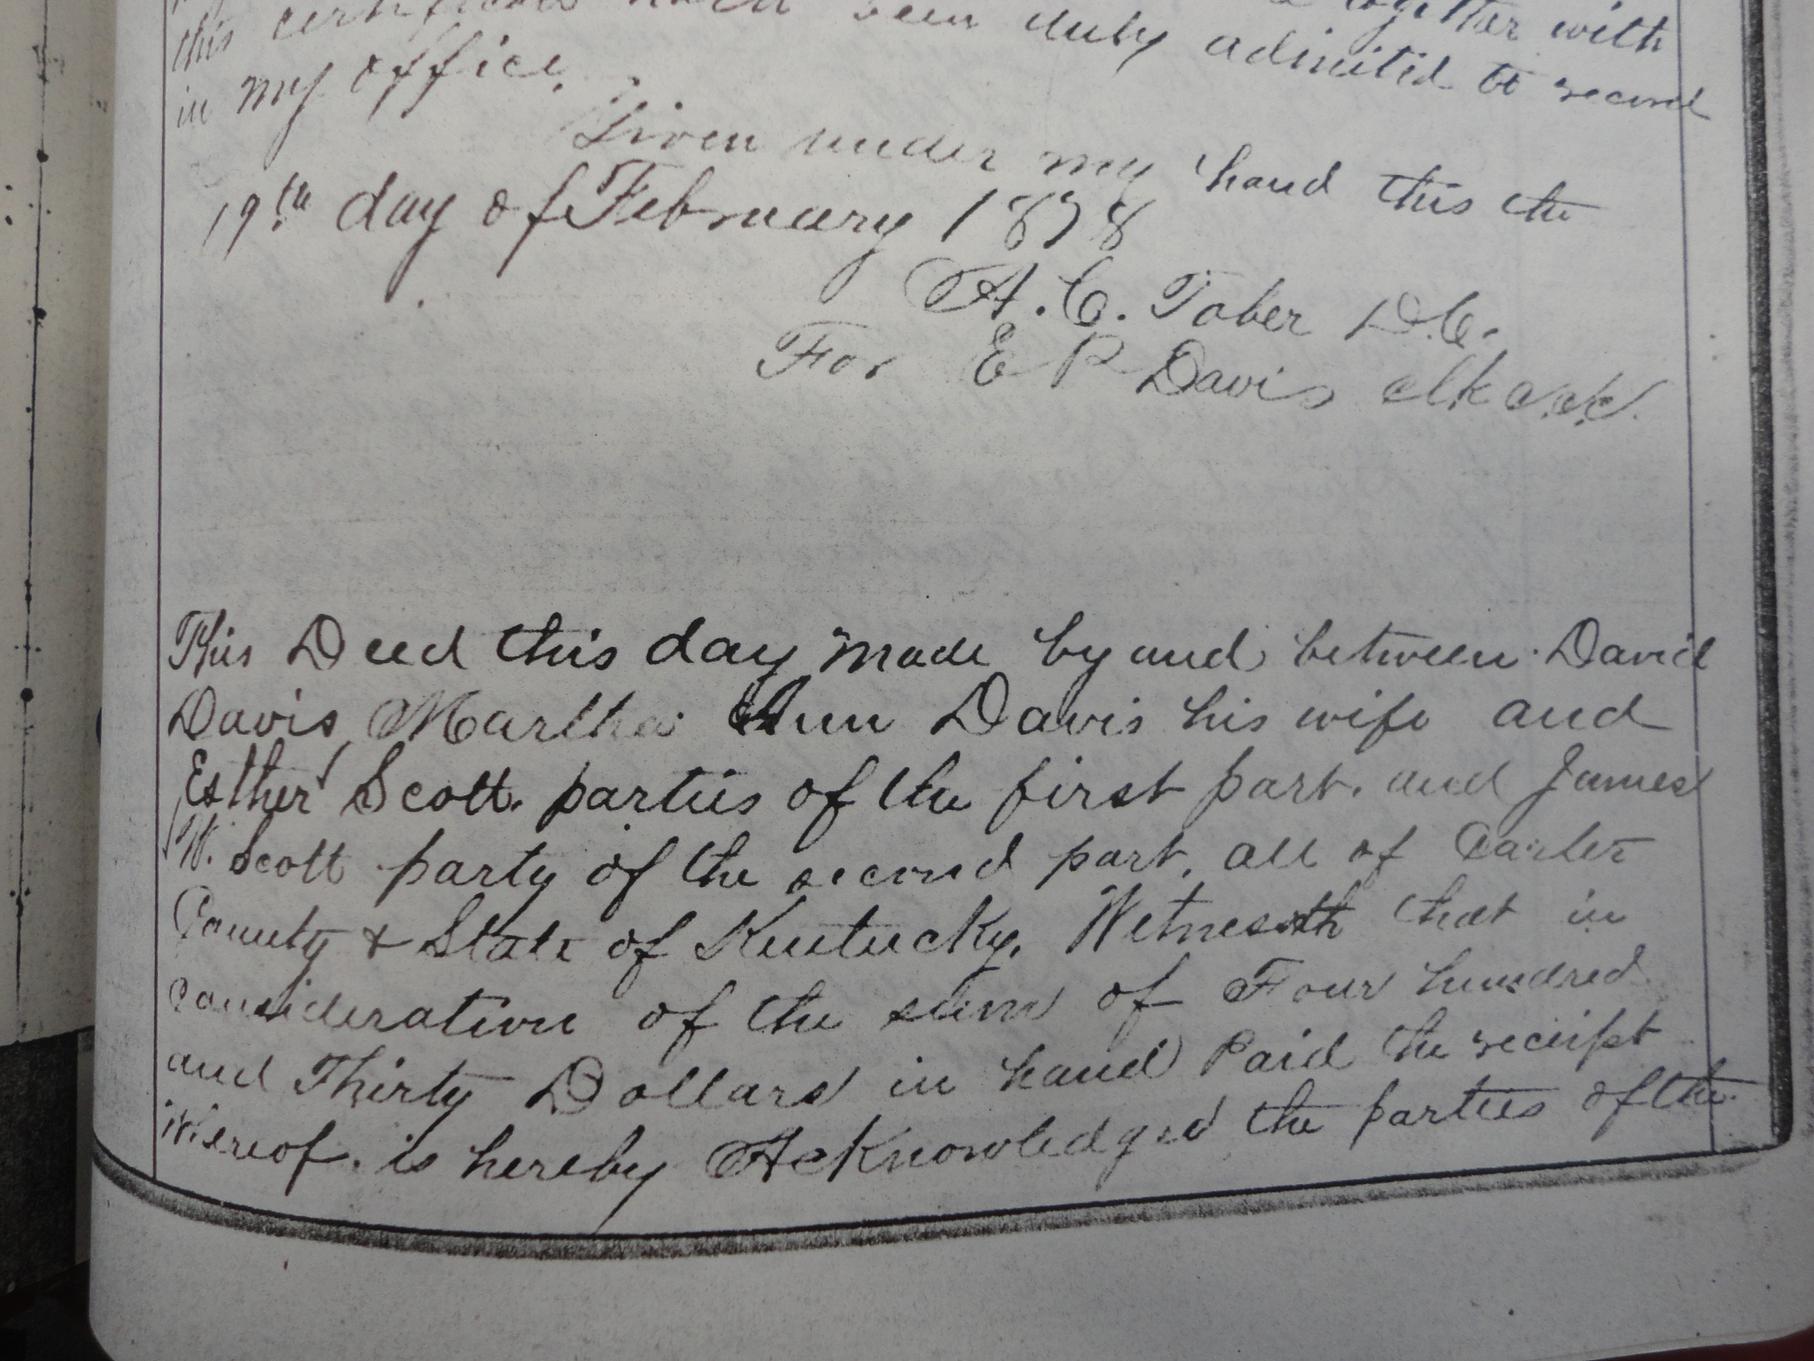 together with
this certificate been duly admitted to record
in my office.
Given under my hand this the
19th day of February 1878
A. C. Tober D.C.
For E P Davis clk
This Deed this day made by and between David
Davis Martha Ann Davis his wife and
Esther Scott. parties of the first part. and James
W. Scott party of the second part, all of Carter
County & State of Kentucky. Witnesseth that in
consideration of the sum of Four hundred
and Thirty Dollars in hand Paid the receipt
whereof. is hereby Acknowledged the parties of the